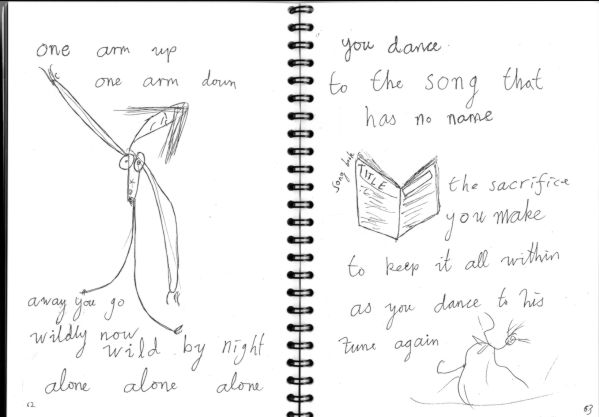 one arm up
one arm down
away you go
wildly now
wild by night
alone alone alone
62
you dance
to the song that
has no name
song book
TITLE
the sacrifice
you make
to keep it all within
as you dance to his
tune again
63